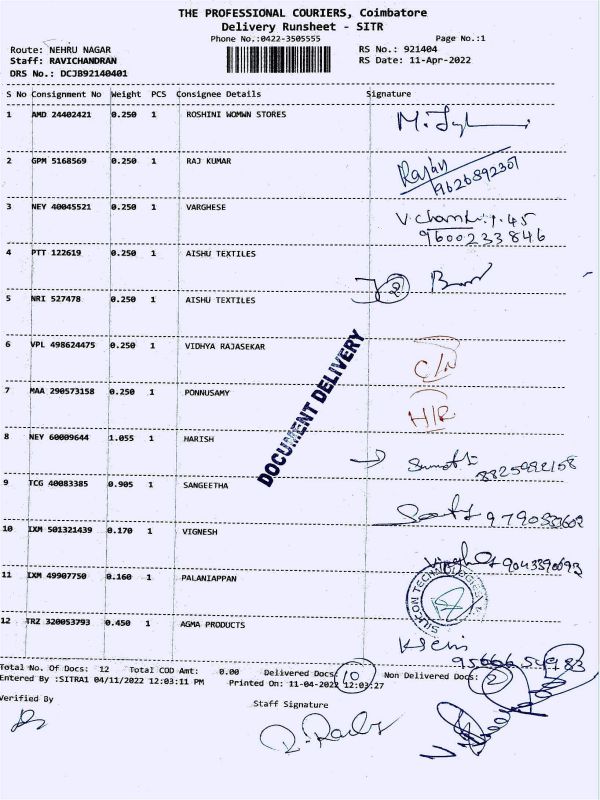 THE PROFESSIONAL COURIERS, Coimbatore
Delivery Runsheet - SITR
Phone No.:0422-3505555 Page No.:1
Route: NEHRU NAGAR RS No.: 921404
Staff: RAVICHANDRAN RS Date: 11-Apr-2022
DRS No.: DCJB92140401
S No Consignment No Weight PCS Consignee Details Signature
1 AMD 24402421 0.250 1 ROSHINI WOMWN STORES
2 GPM 5168569 0.250 1 RAJ KUMAR
Rajan
9626892307
3 NEY 40045521 0.250 1 VARGHESE
9600233846
4 PTT 122619 0.250 1 AISHU TEXTILES
2
5 NRI 527478 0.250 1 AISHU TEXTILES
6 VPL 498624475 0.250 1 VIDHYA RAJASEKAR
DOCUMENT DELIVERY
7 MAA 290573158 0.250 1 PONNUSAMY
H/R
8 NEY 60009644 1.055 1 HARISH
9 TCG 40083385 0.905 1 SANGEETHA
10 IXM 501321439 0.170 1 VIGNESH
11 IXM 49907750 0.160 1 PALANIAPPAN
12 TRZ 320053793 0.450 1 AGMA PRODUCTS
Total No. Of Docs: 12 Total COD Amt: 0.00 Delivered Docs: 10 Non Delivered Docs: 2
Entered By :SITRA1 04/11/2022 12:03:11 PM Printed On: 11-04-2022 12:03:27
Verified By Staff Signature